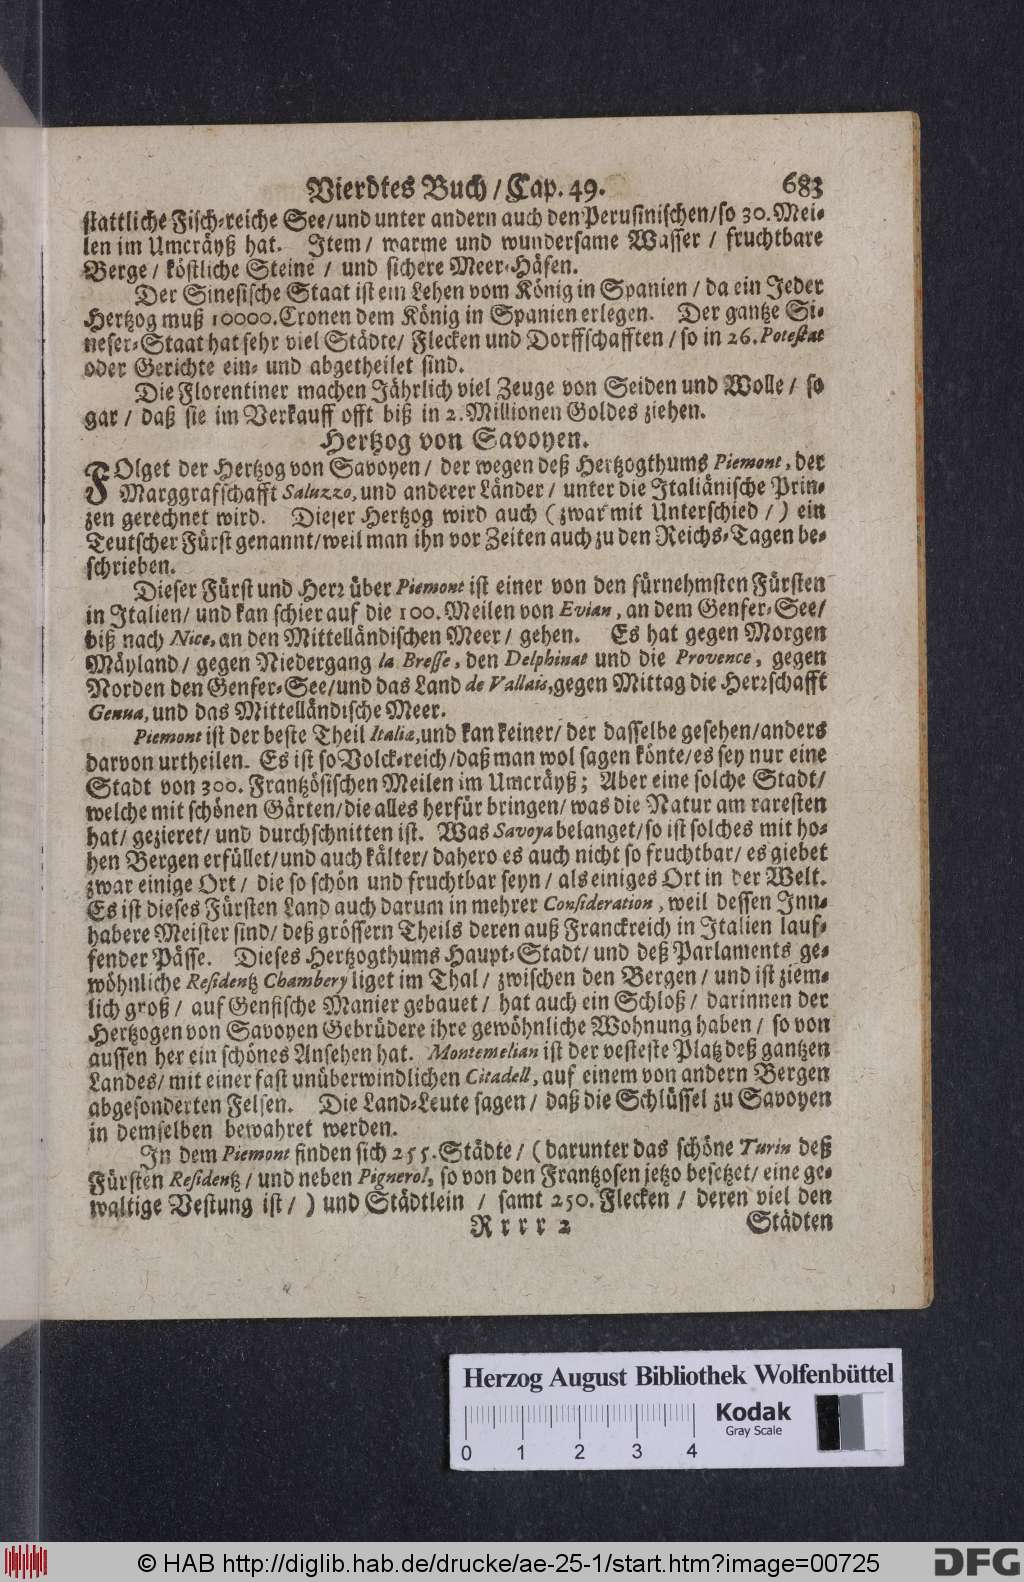 Vierdtes Buch / Cap. 49. 683
stattliche Fisch-reiche See/und unter andern auch den Perusinischen/so 30. Mei-
len im Umcräyß hat. Item / warme und wundersame Wasser / fruchtbare
Berge / köstliche Steine / und sichere Meer-Häfen.
Der Sinesische Staat ist ein Lehen vom König in Spanien / da ein Jeder
Hertzog muß 10000. Cronen dem König in Spanien erlegen. Der gantze Si-
neser-Staat hat sehr viel Städte/ Flecken und Dorffschafften / so in 26. Potestat
oder Gerichte ein- und abgetheilet sind.
Die Florentiner machen Jährlich viel Zeuge von Seiden und Wolle / so
gar / daß sie im Verkauff offt biß in 2. Millionen Goldes ziehen.
Hertzog von Savoyen.
FOlget der Hertzog von Savoyen / der wegen deß Hertzogthums Piemont, der
Marggrafschafft Saluzzo, und anderer Länder / unter die Italiänische Prin-
zen gerechnet wird. Dieser Hertzog wird auch (zwar mit Unterschied /) ein
Teutscher Fürst genannt/weil man ihn vor Zeiten auch zu den Reichs-Tagen be-
schrieben.
Dieser Fürst und Herr über Piemont ist einer von den fürnehmsten Fürsten
in Italien/ und kan schier auf die 100. Meilen von Evian, an dem Genfer-See/
biß nach Nice, an den Mittelländischen Meer / gehen. Es hat gegen Morgen
Mäyland/ gegen Niedergang la Bresse, den Delphinat und die Provence, gegen
Norden den Genfer-See/und das Land de Vallais, gegen Mittag die Herrschafft
Genua, und das Mittelländische Meer.
Piemont ist der beste Theil Italiæ, und kan keiner/ der dasselbe gesehen/anders
darvon urtheilen. Es ist so Volck-reich/daß man wol sagen könte/es sey nur eine
Stadt von 300. Frantzösischen Meilen im Umcräyß; Aber eine solche Stadt/
welche mit schönen Gärten/die alles herfür bringen/ was die Natur am raresten
hat/ gezieret/ und durchschnitten ist. Was Savoya belanget/so ist solches mit ho-
hen Bergen erfüllet/und auch kälter/ dahero es auch nicht so fruchtbar/ es giebet
zwar einige Ort / die so schön und fruchtbar seyn/ als einiges Ort in der Welt.
Es ist dieses Fürsten Land auch darum in mehrer Consideration, weil dessen Inn-
habere Meister sind/ deß grössern Theils deren auß Franckreich in Italien lauf-
fender Pässe. Dieses Hertzogthums Haupt-Stadt/ und deß Parlaments ge-
wöhnliche Residentz Chambery liget im Thal / zwischen den Bergen / und ist ziem-
lich groß / auf Gensische Manier gebauet / hat auch ein Schloß / darinnen der
Hertzogen von Savoyen Gebrüdere ihre gewöhnliche Wohnung haben / so von
aussen her ein schönes Ansehen hat. Montemelian ist der vesteste Platz deß gantzen
Landes/ mit einer fast unüberwindlichen Citadell, auf einem von andern Bergen
abgesonderten Felsen. Die Land-Leute sagen / daß die Schlüssel zu Savoyen
in demselben bewahret werden.
In dem Piemont finden sich 255. Städte / (darunter das schöne Turin deß
Fürsten Residentz / und neben Pignerol, so von den Frantzosen jetzo besetzet/ eine ge-
waltige Vestung ist / ) und Städtlein / samt 250. Flecken / deren viel den
Rrrr 2 Städten
Herzog August Bibliothek Wolfenbüttel
Kodak
Gray Scale
0 1 2 3 4
© HAB http://diglib.hab.de/drucke/ae-25-1/start.htm?image=00725
DFG